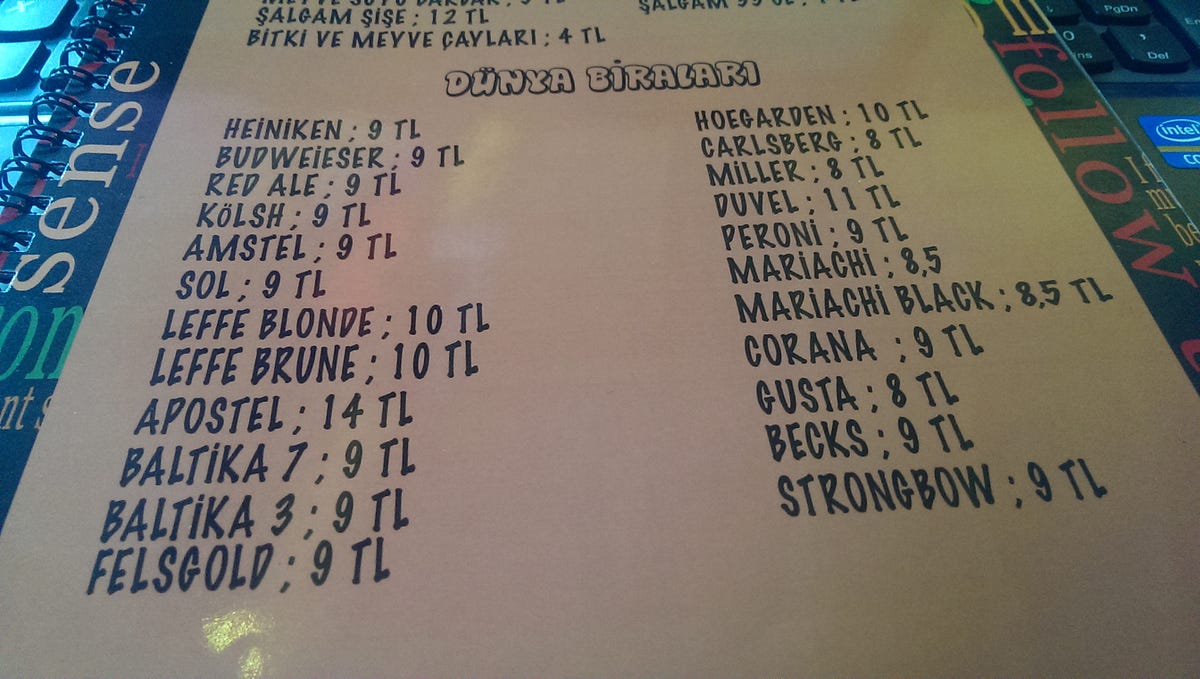 ŞALGAM ŞİŞE ; 12 TL
BİTKİ VE MEYVE ÇAYLARI ; 4 TL
DÜNYA BİRALARI
HEİNİKEN ; 9 TL
BUDWEİESER ; 9 TL
RED ALE ; 9 TL
KÖLSH ; 9 TL
AMSTEL ; 9 TL
SOL ; 9 TL
LEFFE BLONDE ; 10 TL
LEFFE BRUNE ; 10 TL
APOSTEL ; 14 TL
BALTİKA 7 ; 9 TL
BALTİKA 3 ; 9 TL
FELSGOLD ; 9 TL
HOEGARDEN ; 10 TL
CARLSBERG ; 8 TL
MİLLER ; 8 TL
DUVEL ; 11 TL
PERONİ ; 9 TL
MARİACHİ ; 8,5
MARİACHİ BLACK ; 8,5 TL
CORANA ; 9 TL
GUSTA ; 8 TL
BECKS ; 9 TL
STRONGBOW ; 9 TL
sense
follow
PgDn
Del
intel